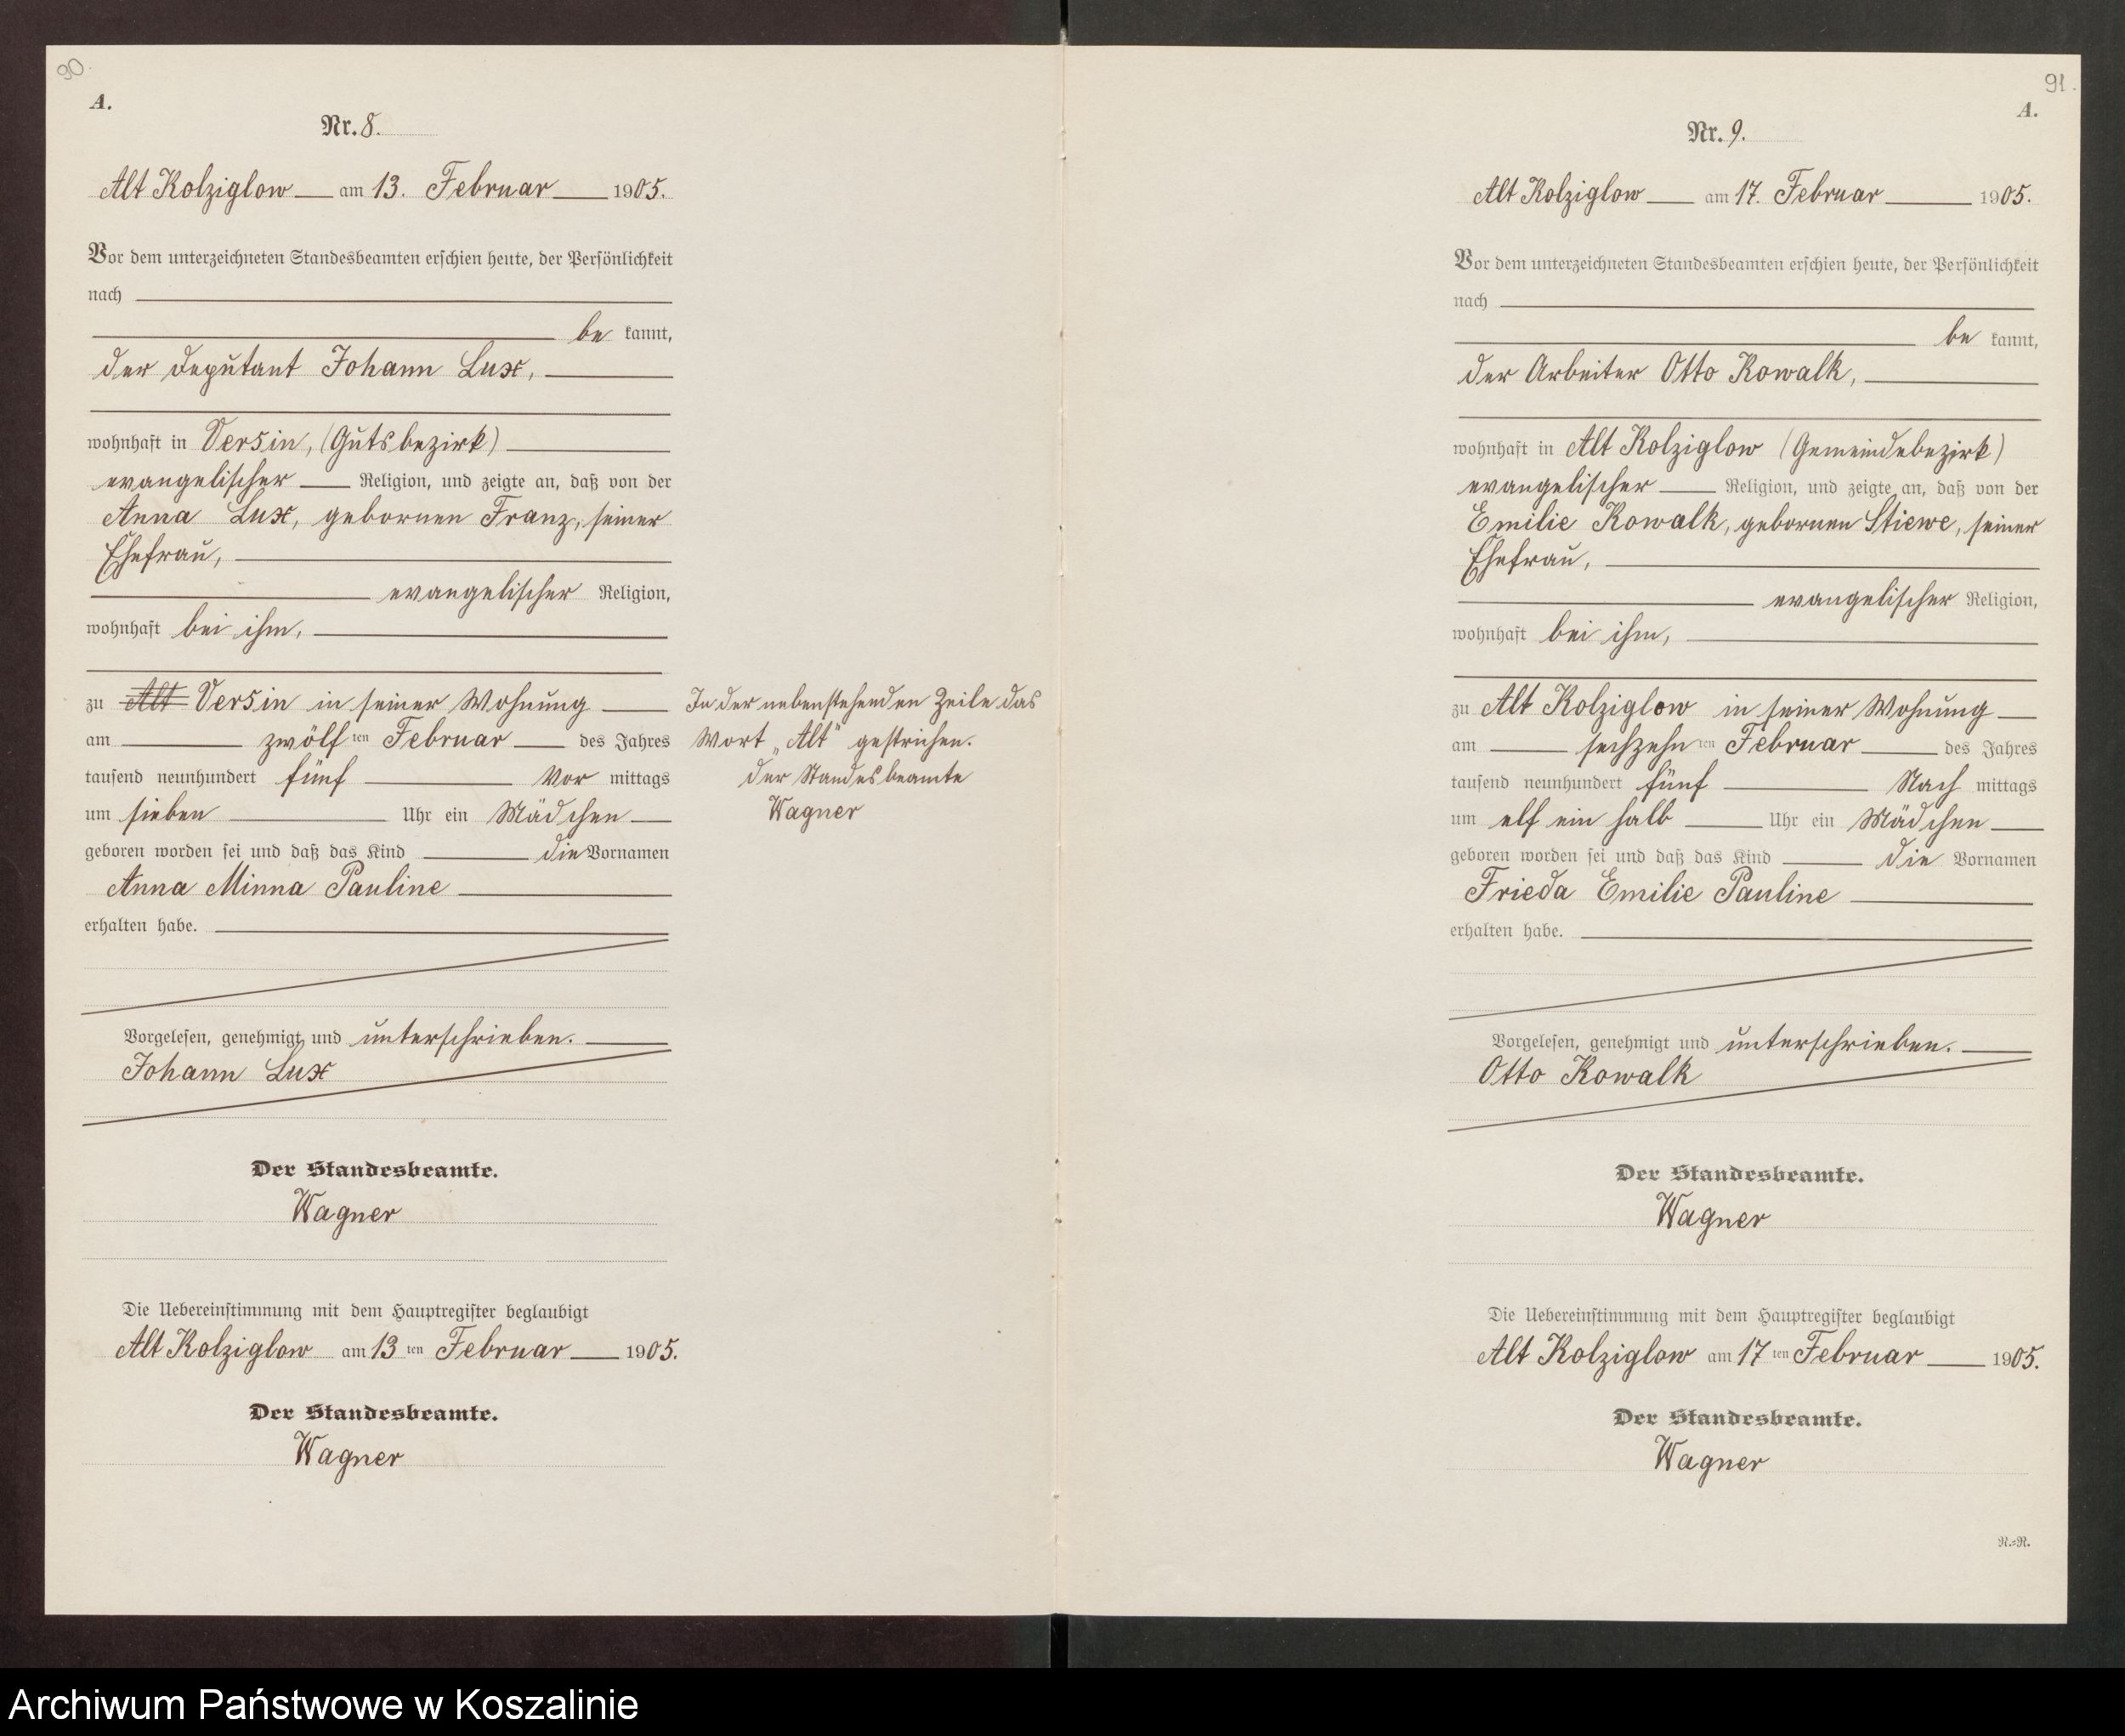 90.
A.
Nr. 8.
Alt Kolziglow am 13. Februar 1905.
Vor dem unterzeichneten Standesbeamten erschien heute, der Persönlichkeit
nach
be kannt,
der Deputant Johann Lux,
wohnhaft in Versin, (Gutsbezirk)
evangelischer Religion, und zeigte an, daß von der
Anna Lux, gebornen Franz, seiner
Ehefrau,
evangelischer Religion,
wohnhaft bei ihm,
zu Alt Versin in seiner Wohnung
am zwölf ten Februar des Jahres
tausend neunhundert fünf Vor mittags
um sieben Uhr ein Mädchen
geboren worden sei und daß das Kind die Vornamen
Anna Minna Pauline
erhalten habe.
Vorgelesen, genehmigt und unterschrieben.
Johann Lux
Der Standesbeamte.
Wagner
Die Uebereinstimmung mit dem Hauptregister beglaubigt
Alt Kolziglow am 13 ten Februar 1905.
Der Standesbeamte.
Wagner
In der nebenstehenden Zeile das
Wort „Alt" gestrichen.
Der Standesbeamte
Wagner
91.
A.
Nr. 9.
Alt Kolziglow am 17. Februar 1905.
Vor dem unterzeichneten Standesbeamten erschien heute, der Persönlichkeit
nach
be kannt,
der Arbeiter Otto Kowalk,
wohnhaft in Alt Kolziglow (Gemeindebezirk)
evangelischer Religion, und zeigte an, daß von der
Emilie Kowalk, gebornen Stiewe, seiner
Ehefrau,
evangelischer Religion,
wohnhaft bei ihm,
zu Alt Kolziglow in seiner Wohnung
am sechzehn ten Februar des Jahres
tausend neunhundert fünf Nach mittags
um elf ein halb Uhr ein Mädchen
geboren worden sei und daß das Kind die Vornamen
Frieda Emilie Pauline
erhalten habe.
Vorgelesen, genehmigt und unterschrieben.
Otto Kowalk
Der Standesbeamte.
Wagner
Die Uebereinstimmung mit dem Hauptregister beglaubigt
Alt Kolziglow am 17 ten Februar 1905.
Der Standesbeamte.
Wagner
N.=R.
Archiwum Państwowe w Koszalinie